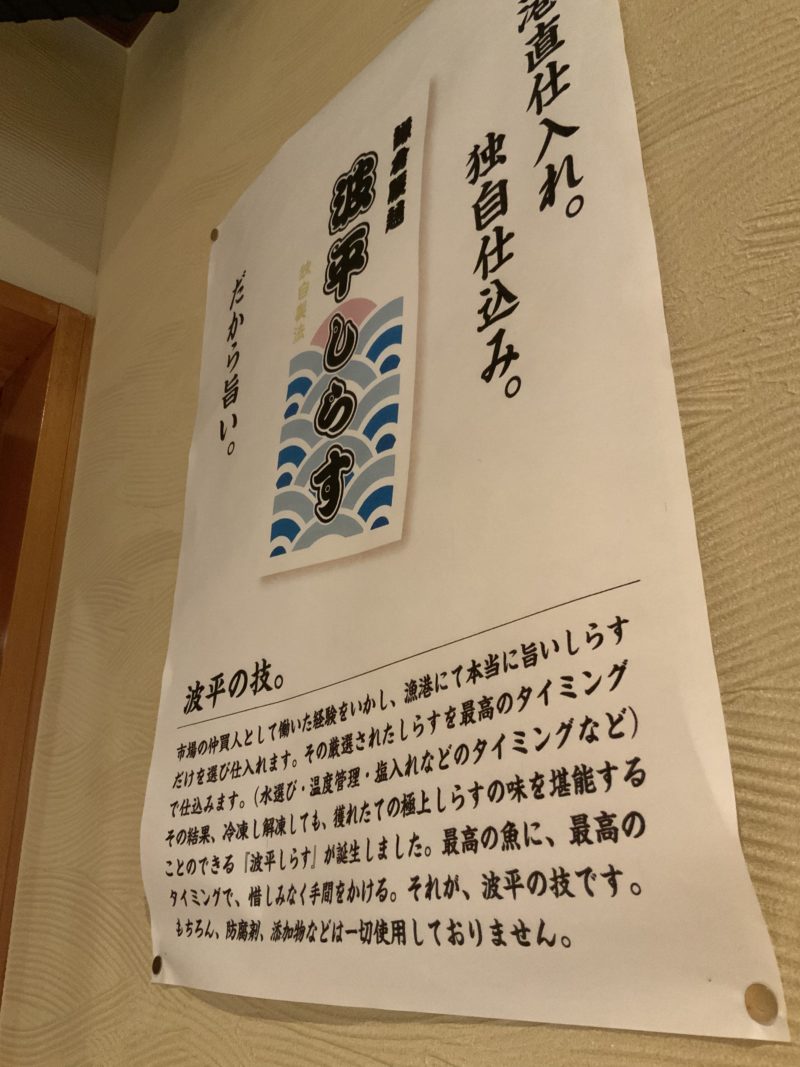 港直仕入れ。
独自仕込み。
鎌倉腰越
波平しらす
独自製法
だから旨い。
波平の技。
市場の仲買人として働いた経験をいかし、漁港にて本当に旨いしらす
だけを選び仕入れます。その厳選されたしらすを最高のタイミング
で仕込みます。（水選び・温度管理・塩入れなどのタイミングなど）
その結果、冷凍し解凍しても、獲れたての極上しらすの味を堪能する
ことのできる『波平しらす』が誕生しました。最高の魚に、最高の
タイミングで、惜しみなく手間をかける。それが、波平の技です。
もちろん、防腐剤、添加物などは一切使用しておりません。